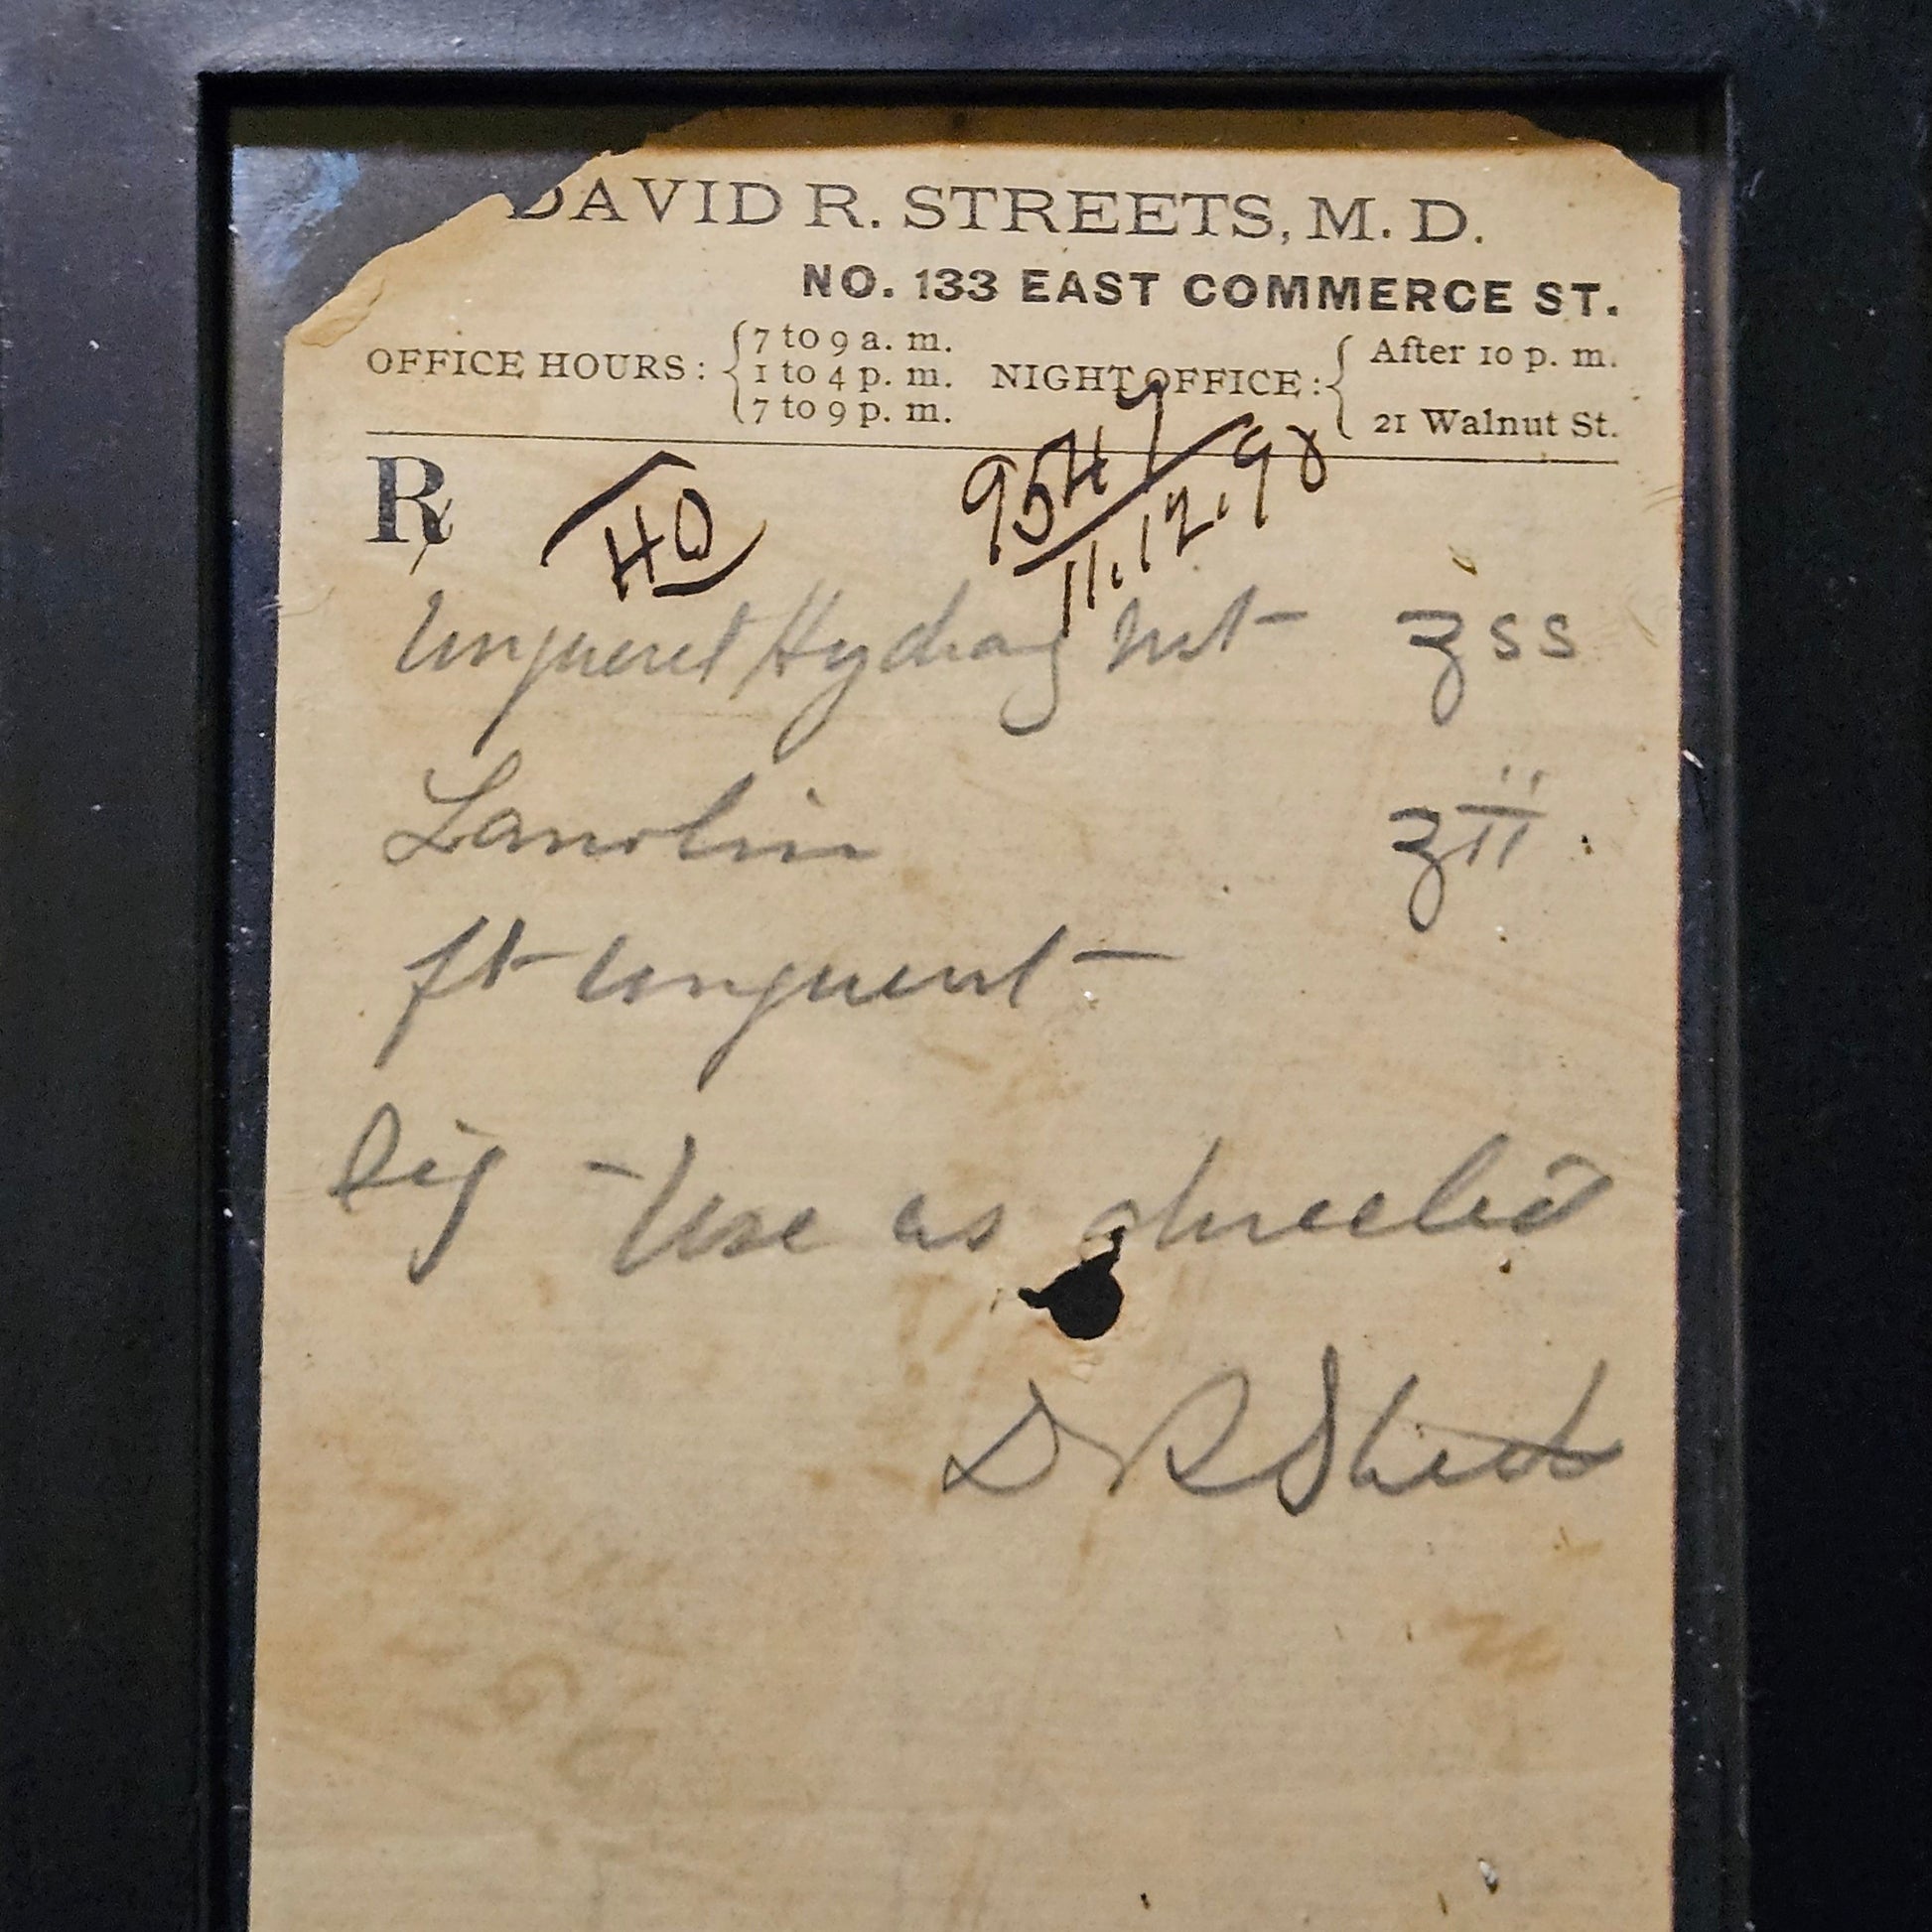 DAVID R. STREETS, M. D.
NO. 133 EAST COMMERCE ST.
OFFICE HOURS: 7 to 9 a. m. 1 to 4 p. m. 7 to 9 p. m. NIGHT OFFICE: After 10 p. m. 21 Walnut St.
℞ 40 9549 11.12.98
Unguent Hydrarg Nit ʒss
Lanolin ʒii
ft unguent
Sig - Use as directed
D R Streets